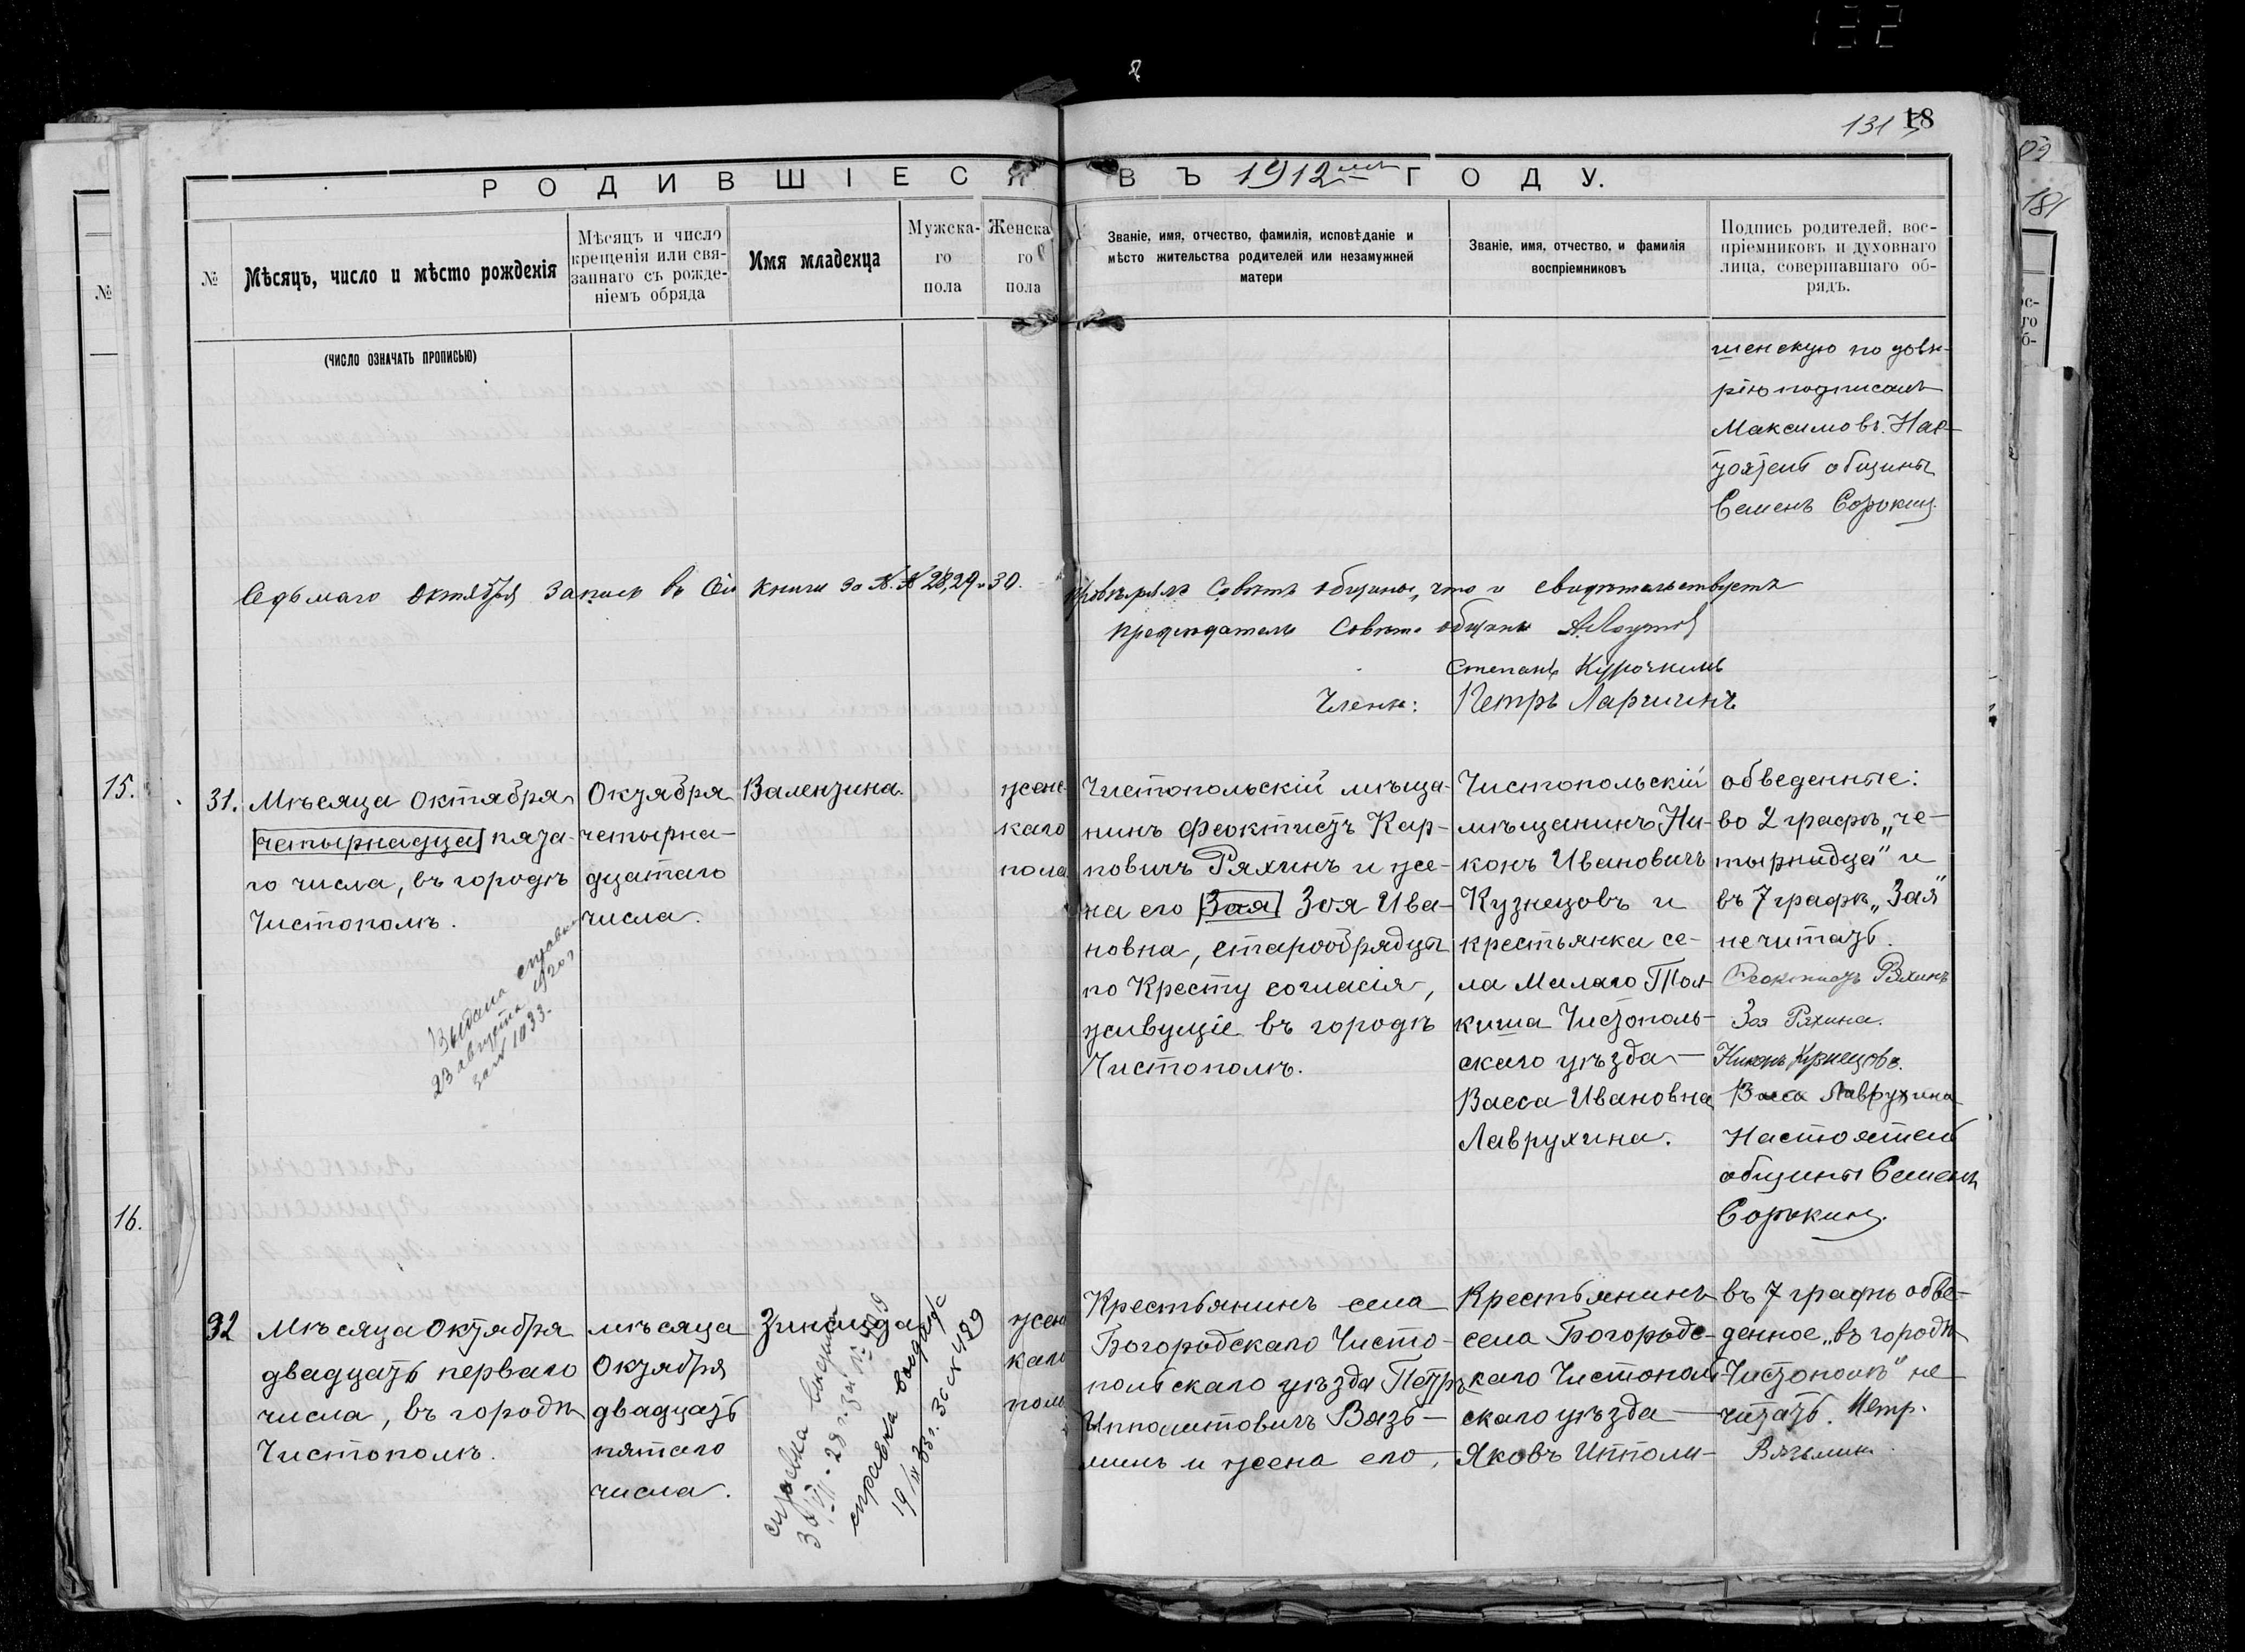 132
131
18
РОДИВШІЕСЯ ВЪ 1912мъ ГОДУ.
№
Мѣсяцъ, число и мѣсто рожденія
Мѣсяцъ и число
крещенія или свя-
заннаго съ рожде-
ніемъ обряда
Имя младенца
Мужска-
го
пола
Женска
го
пола
Званіе, имя, отчество, фамилія, исповѣданіе и
мѣсто жительства родителей или незамужней
матери
Званіе, имя, отчество, и фамилія
воспріемниковъ
Подпись родителей, вос-
пріемниковъ и духовнаго
лица, совершавшаго об-
рядъ.
(ЧИСЛО ОЗНАЧАТЬ ПРОПИСЬЮ)
шенскую по довѣ-
рію подписалъ
Максимовъ. Нас-
тоятель общины
Семенъ Сорокинъ.
Седьмаго Октября Запись въ Сій книги за №.№ 28, 29 и 30. провѣрялъ Совѣтъ общины, что и свидѣтельствуетъ
председатель Совѣта общины
Степанъ Курочкинъ
Члены: Петръ Ларшинъ
31.
Мѣсяца Октября
четырнадца пята-
го числа, въ городѣ
Чистополѣ.
Октября
четырна-
дцатаго
числа.
Валентина.
женс-
каго
пола
Чистопольскій мѣща-
нинъ Феоктистъ Кар-
повичъ Ряхинъ и же-
на его Зая Зоя Ива-
новна, старообрядцы
по Кресту согласія,
живущіе въ городѣ
Чистополѣ.
Чистопольскій
мѣщанинъ Ни-
конъ Ивановичъ
Кузнецовъ и
крестьянка се-
ла Малаго Тол-
киша Чистополь-
скаго уѣзда
Васса Ивановна
Лаврухина.
обведенные:
во 2 графѣ „че-
тырнадца" и
въ 7 графѣ „Зая"
не читать.
Феоктистъ Ряхинъ
Зоя Ряхина.
Никонъ Кузнецовъ.
Васса Лаврухина
Настоятель
общины Семенъ
Сорокинъ.
Выдана справка
23 августа 1920 г
за № 1033.
32
Мѣсяца Октября
двадцать перваго
числа, въ городѣ
Чистополѣ.
мѣсяца
Октября
двадцать
пятаго
числа.
Зинаида
женс
каго
пола
Крестьянинъ села
Богородскаго Чисто-
польскаго уѣзда Петръ
Ипполитовичъ Вязь-
минъ и жена его,
Крестьянинъ
села Богородс-
каго Чистополь-
скаго уѣзда
Яковъ Ипполи-
въ 7 графѣ обве-
денное „въ городѣ
Чистополѣ" не
читать. Петр.
Вязьмин
справка выдана
справка выдана
19/IX 33 г. за № 489
15.
16.
№
181